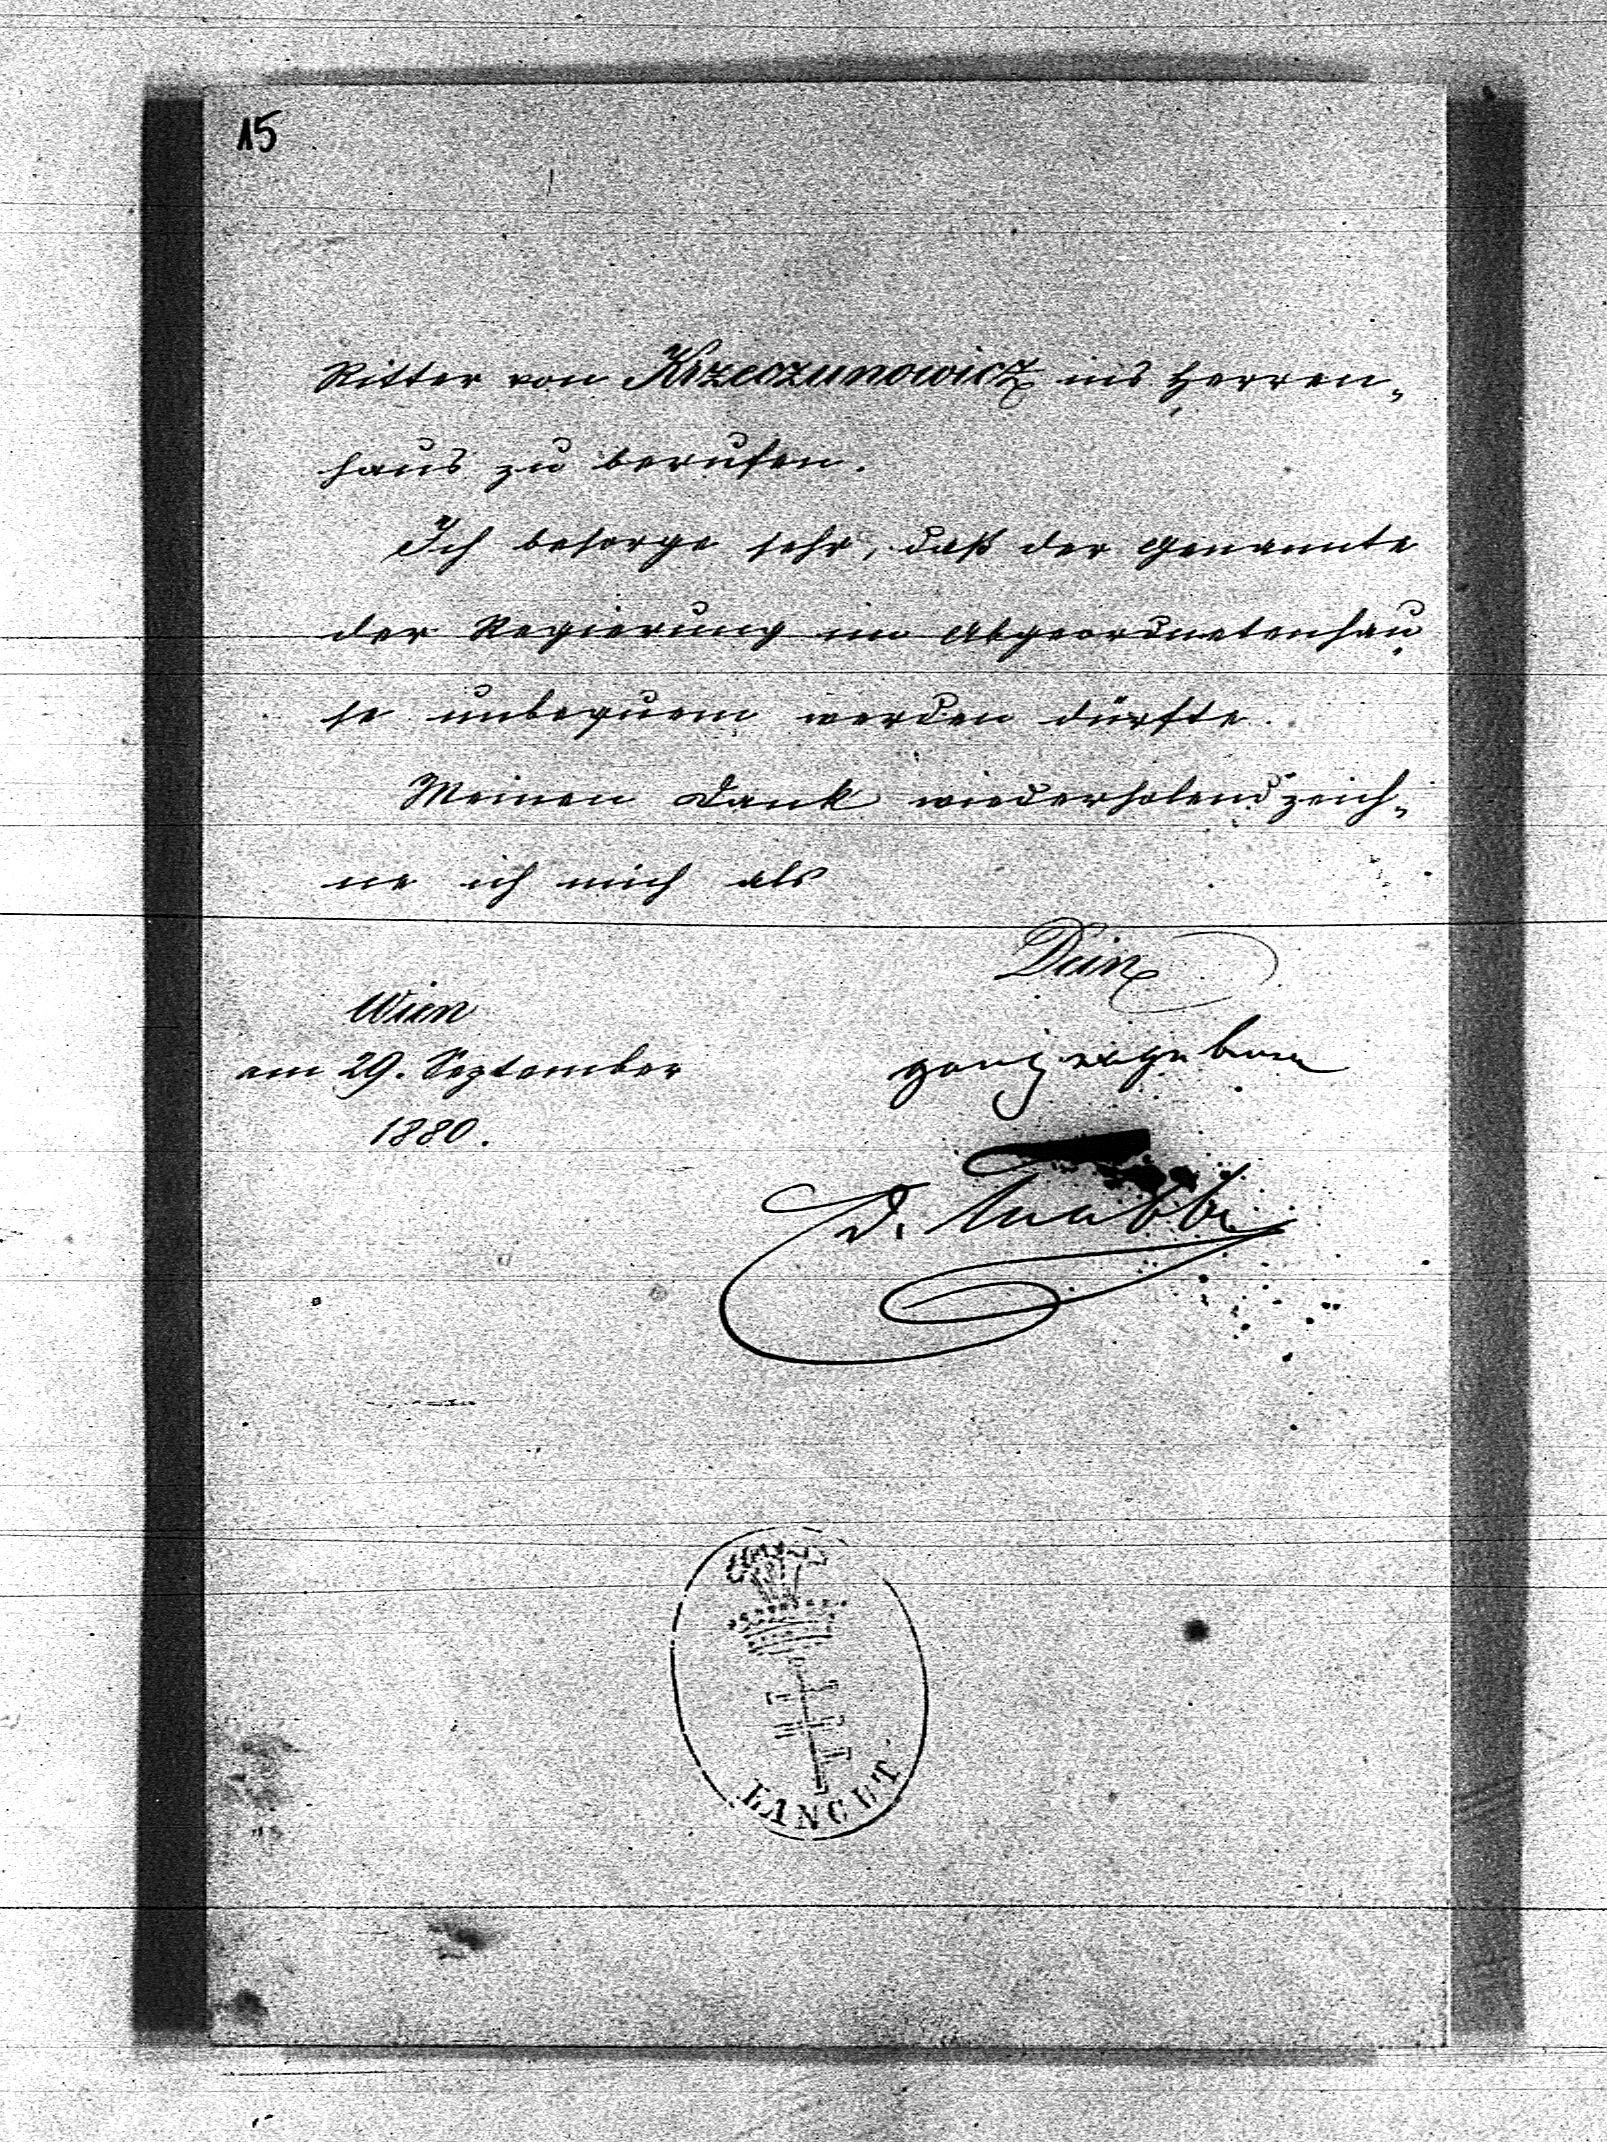 15
Ritter von Krzeczunowicz ins Herren„
haus zu berufen.
Ich besorge sehr, daß der Genannte
der Regierung im Abgeordnetenhau
se unbequem werden dürfte.
Meinen Dank wiederholend zeich„
ne ich mich als
Dein
Wien
am 29. September
ganz ergebener
1880.
ŁAŃCUT